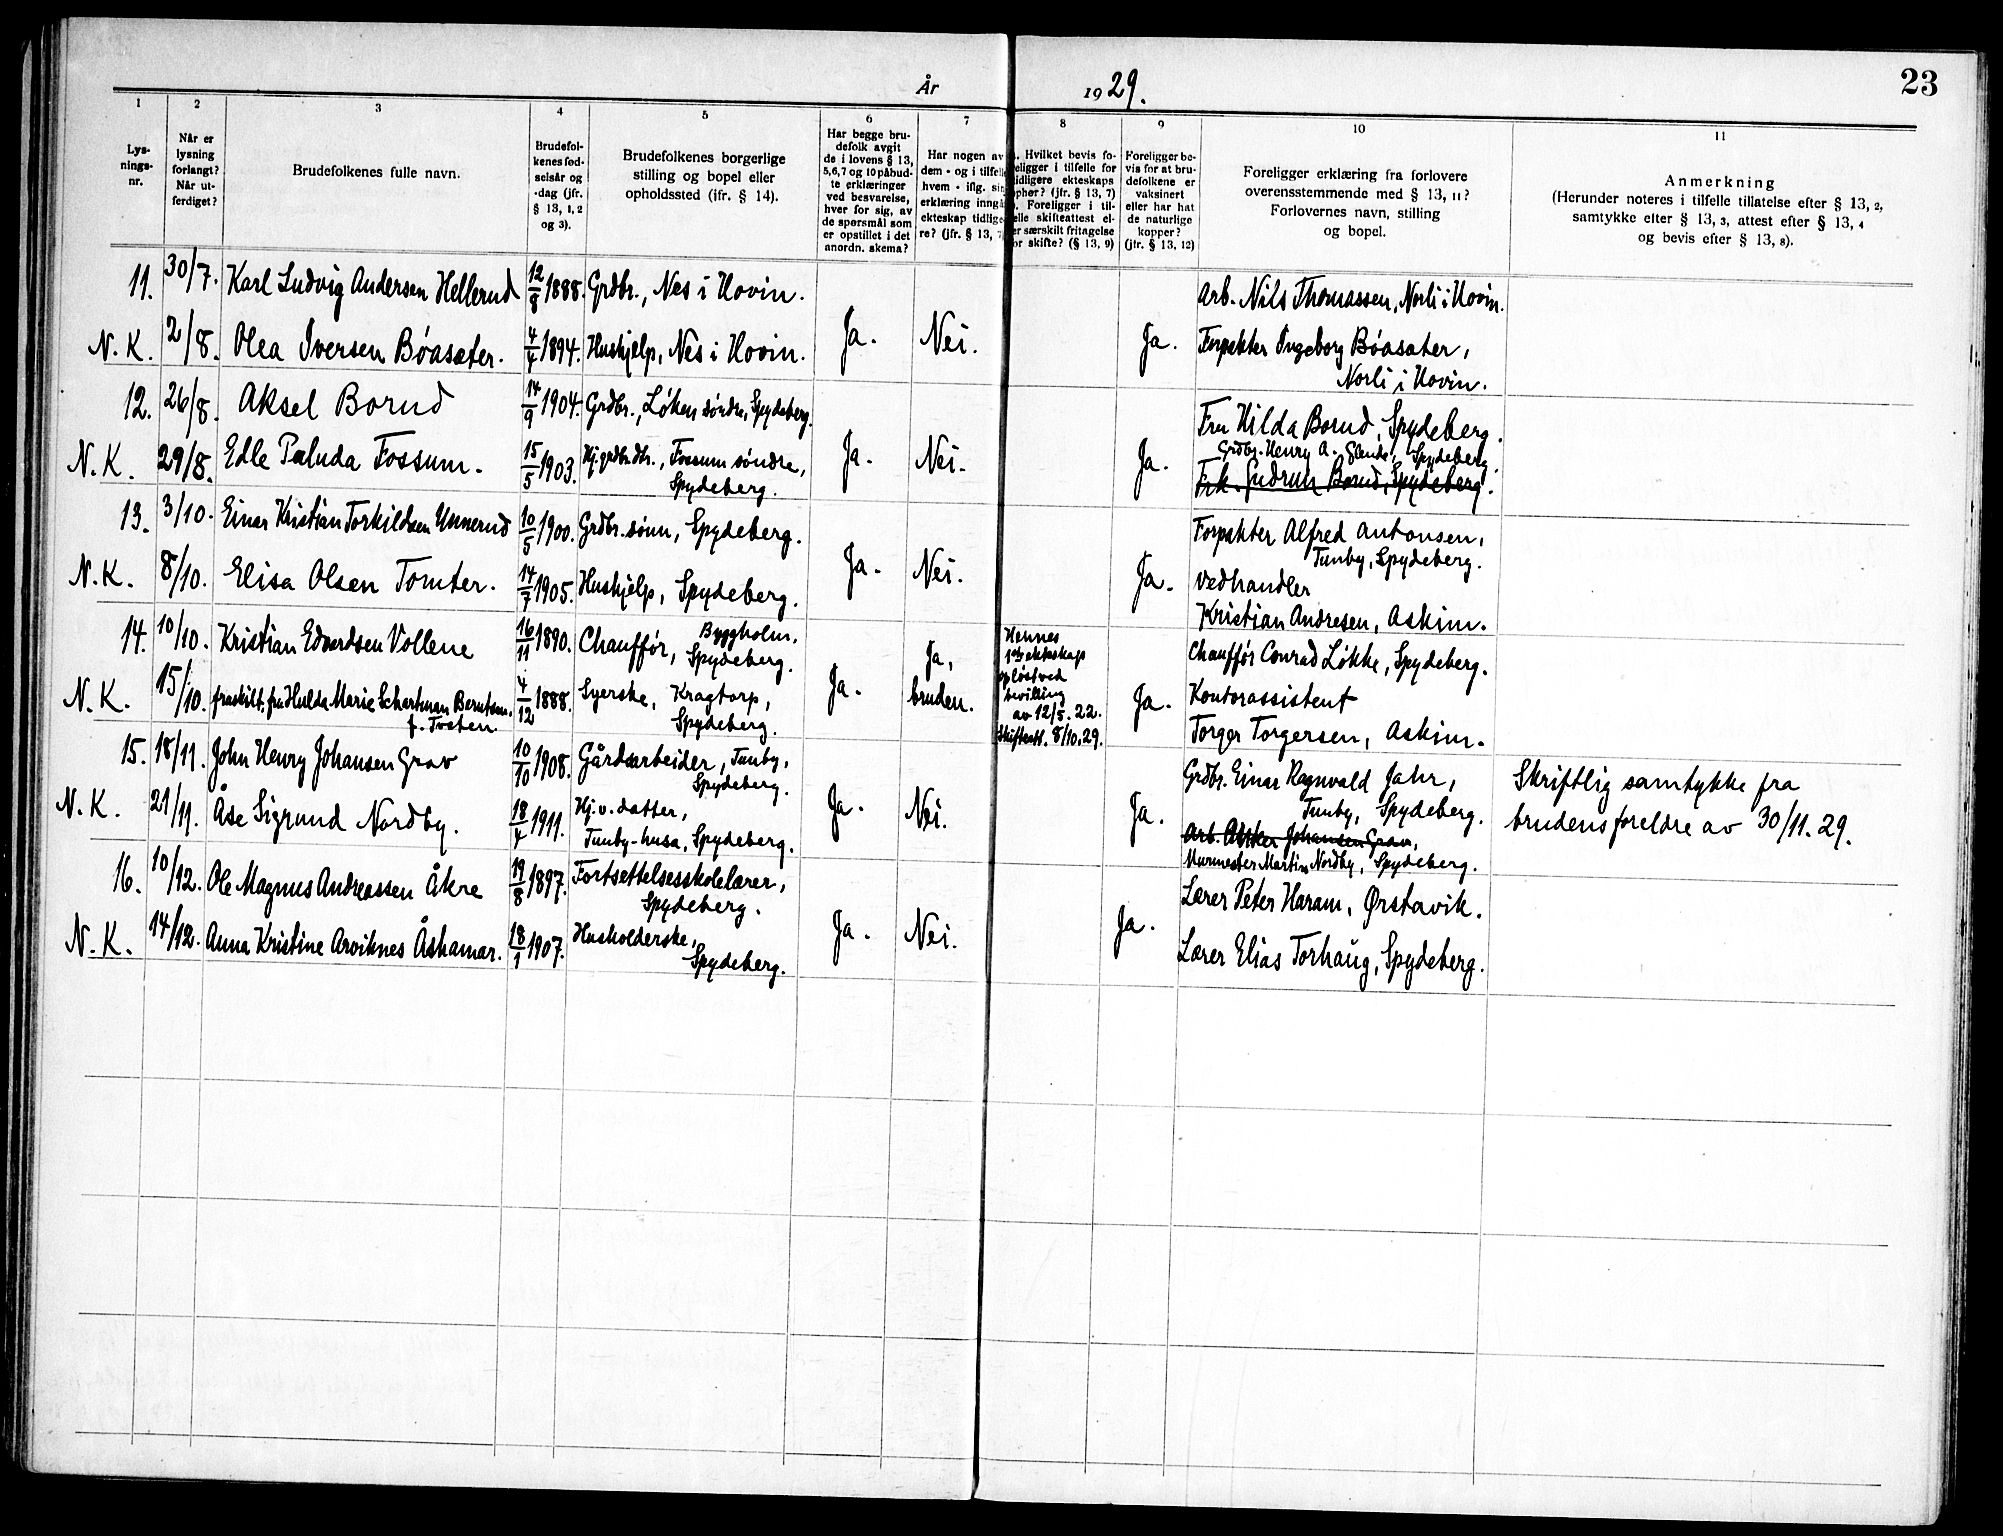 År 1929.
23
1
2
3
4
5
6
7
8
9
10
11
Lys-
nings-
nr.
Når er
lysning
forlangt?
Når ut-
ferdiget?
Brudefolkenes fulle navn.
Brudefol-
kenes fød-
selsår og
-dag (jfr.
§ 13, 1, 2
og 3).
Brudefolkenes borgerlige
stilling og bopel eller
opholdssted (jfr. § 14).
Har begge bru-
defolk avgit
de i lovens § 13,
5,6,7 og 10 påbud-
te erklæringer
ved besvarelse,
hver for sig, av
de spørsmål som
er opstillet i det
anordn. skema?
Har nogen av
dem - og i tilfelle
hvem - iflg. sin
erklæring inngå
ekteskap tidlige-
re? (jfr. § 13, 7
. Hvilket bevis fo-
eligger i tilfelle for
idligere ekteskaps
ophør? (jfr. § 13, 7)
. Foreligger i til-
elle skifteattest el-
er særskilt fritagelse
or skifte? (§ 13, 9)
Foreligger be-
vis for at bru-
defolkene er
vaksinert
eller har hat
de naturlige
kopper?
(jfr. § 13, 12)
Foreligger erklæring fra forlovere
overensstemmende med § 13, 11?
Forlovernes navn, stilling
og bopel.
Anmerkning
(Herunder noteres i tilfelle tillatelse efter § 13, 2,
samtykke efter § 13, 3, attest efter § 13, 4
og bevis efter § 13, 8).
11. 30/7. Karl Ludvig Andersen Hellerud 12/8 1888. Grdbr., Nes i Hovin. Arb. Nils Thomassen, Norli i Hovin.
N. K. 2/8. Olea Iversen Bøasæter. 4/4 1894. Hushjelp, Nes i Hovin. Ja. Nei. Ja. Forpakter Ingeborg Bøasæter,
Norli i Hovin.
12. 26/8. Aksel Borud 14/9 1904. Grdbr., Løken søndre, Spydeberg. Fru Hilda Borud, Spydeberg.
N. K. 29/8. Edle Paluda Fossum. 15/5 1903. Hj. grdbr.dtr., Fossum søndre, Ja. Nei. Ja. Grdbr. Henry A. Spydeberg.
Spydeberg. Frk. Gudrun Borud, Spydeberg.
13. 3/10. Einar Kristian Torkildsen Unnerud 10/5 1900. Grdbr. sønn, Spydeberg. Forpakter Alfred Antonsen,
Tunby, Spydeberg.
N. K. 8/10. Elisa Olsen Tomter. 14/7 1905. Hushjelp, Spydeberg. Ja. Nei. Ja. Vedhandler
Kristian Andresen, Askim.
14. 10/10. Kristian Edvardsen Vollene 16/11 1890. Chauffør, Byggholm,
Spydeberg. Chauffør Conrad Løkke, Spydeberg.
N. K. 15/10. fraskilt, fru Hulda Marie Schartman Berntsen, 4/12 1888. Syerske, Kragtorp, Ja. Ja,
f. Tveten Spydeberg. bruden.
Hennes
1ste ekteskap
opløst ved
bevilling
av 12/5. 22.
Skifteatt. 8/10.29.
Ja. Kontorassistent
Torger Torgersen, Askim.
15. 18/11. John Henry Johansen Grav 10/10 1908. Gårdsarbeider, Tunby,
Spydeberg. Grdbr. Einar Ragnvald Jahr,
Tunby, Spydeberg.
Skriftlig samtykke fra
brudens foreldre av 30/11. 29.
N. K. 21/11. Åse Sigrund Nordby. 18/4 1911. Hj. v. datter, Ja. Nei. Ja.
Tunby-husa, Spydeberg. Arb. Johansen Grav,
Murmester Martin Nordby, Spydeberg.
16. 10/12. Ole Magnus Andreassen Åkre 19/8 1897. Fortsettelsesskolelærer,
Spydeberg. Lærer Peter Haram, Ørstavik.
N. K. 14/12. Anna Kristine Arviknes Åshamar. 18/1 1907. Husholderske,
Spydeberg. Ja. Nei. Ja. Lærer Elias Torhaug, Spydeberg.